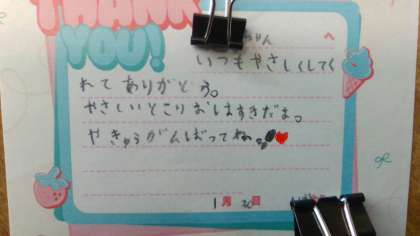 THANK
YOU!
へ
いつもやさしくしてく
れてありがとう。
やさしいとこりおしはすきだよ。
やきゅうがんばってね。
1月 20日